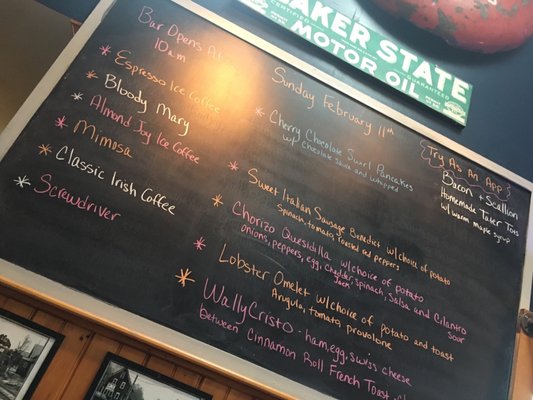 AKER STATE
CERTIFIED
GUARANTEED
MOTOR OIL
Bar Opens At
10am
Espresso Ice Coffee
Bloody Mary
Almond Joy Ice Coffee
Mimosa
Classic Irish Coffee
Screwdriver
Sunday February 11th
Cherry Chocolate Swirl Pancakes
w/ Chocolate sauce and whipped
Sweet Italian Sausage Benedict w/ choice of potato
Spinach, tomato, roasted red peppers
Chorizo Quesidilla w/ choice of potato
onions, peppers, egg, chedder, spinach, Salsa and Cilantro
Jack
Sour
Lobster Omelet w/ choice of potato and toast
Arugula, tomato, provolone
WallyCristo - ham, egg, swiss cheese
between Cinnamon Roll French Toast
Try As An App
Bacon + Scallion
Homemade Tater Tots
w/ warm maple syrup